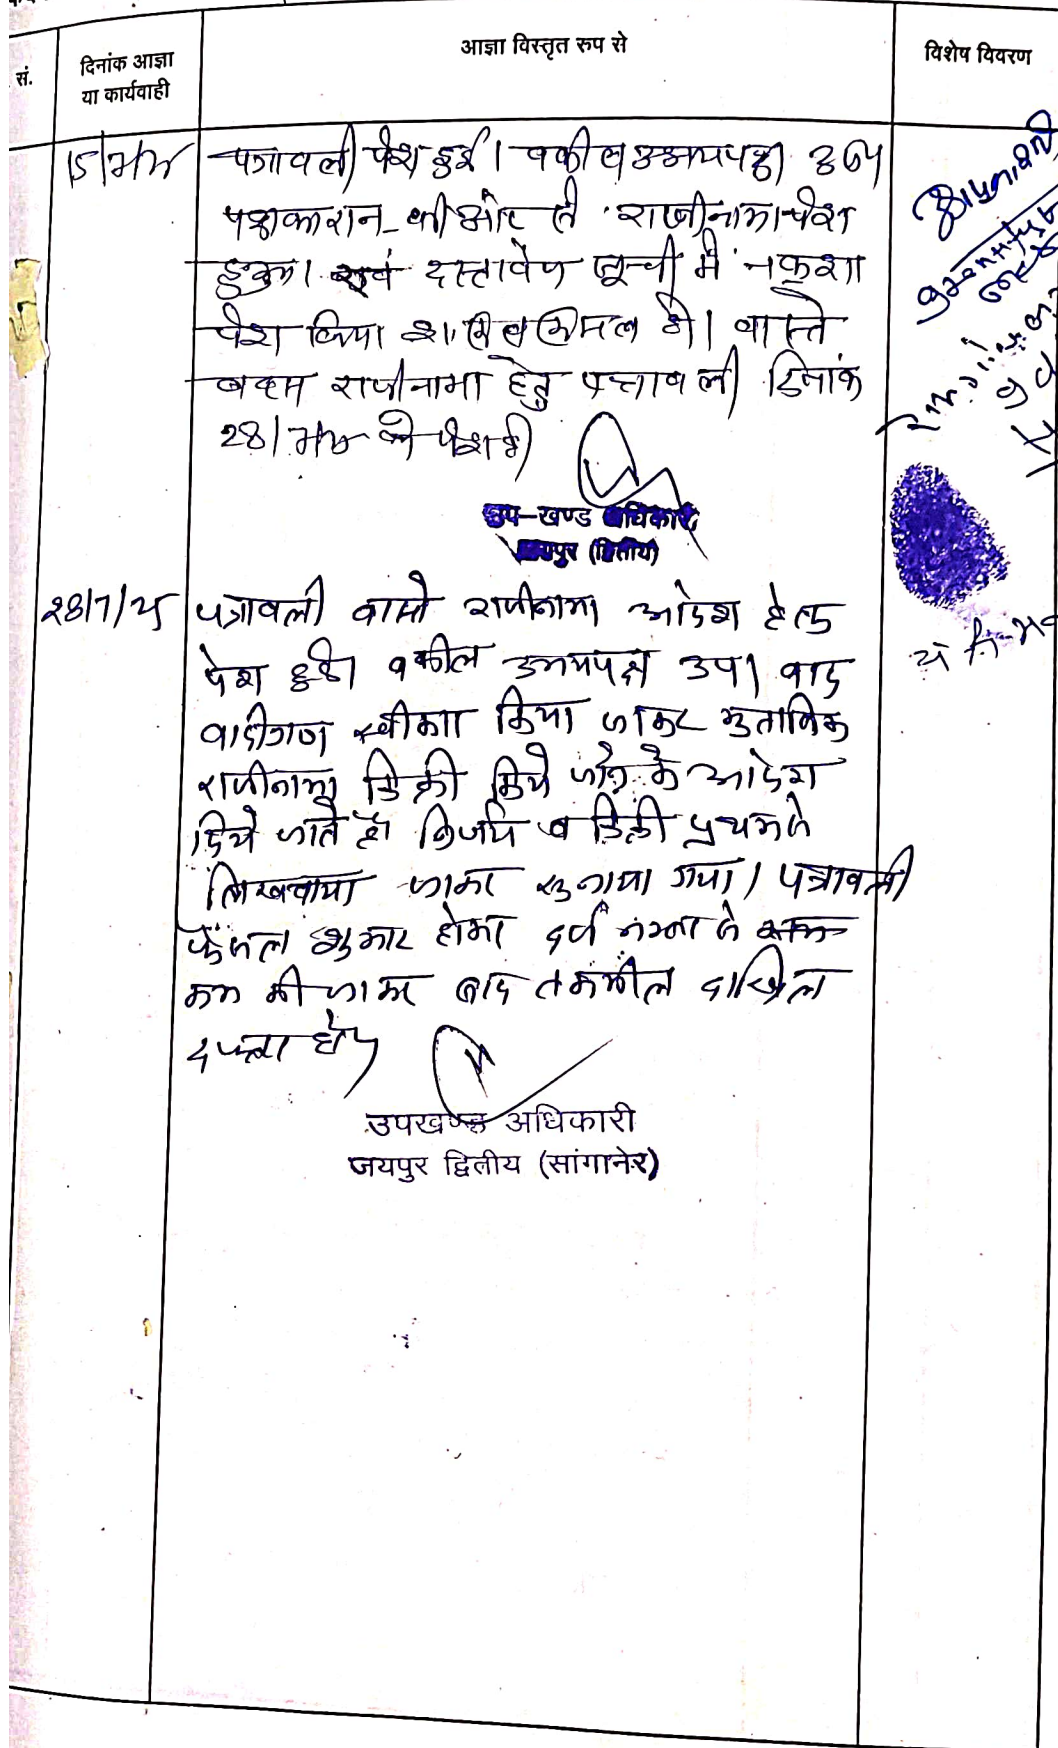 सं.
दिनांक आज्ञा
या कार्यवाही
आज्ञा विस्तृत रुप से
विशेष विवरण
पत्रावली पेश हुई। वकील उभयपक्ष उप।
पक्षकारान की ओर से राजीनामा पेश
हुआ। एवं दस्तावेज सूची में नकशा
पेश किया शामिल मिसल हो। वास्ते
बहस राजीनामा हेतु पत्रावली दिनांक
28/ को पेश हो
उप-खण्ड अधिकारी
जयपुर (द्वितीय)
28/7/25
पत्रावली वास्ते राजीनामा आदेश हेतु
पेश हुई। वकील उभयपक्ष उप। वाद
वादीगण स्वीकार किया जाकर मुताबिक
राजीनामा डिक्री किये जाने के आदेश
दिये जाते है। निर्णय व डिक्री पृथक से
लिखवाया जाकर सुनाया गया। पत्रावली
फैसल शुमार होकर दर्ज नम्बर से
कम की जाकर बाद तकमील दाखिल
दफ्तर हो।
उपखण्ड अधिकारी
जयपुर द्वितीय (सांगानेर)